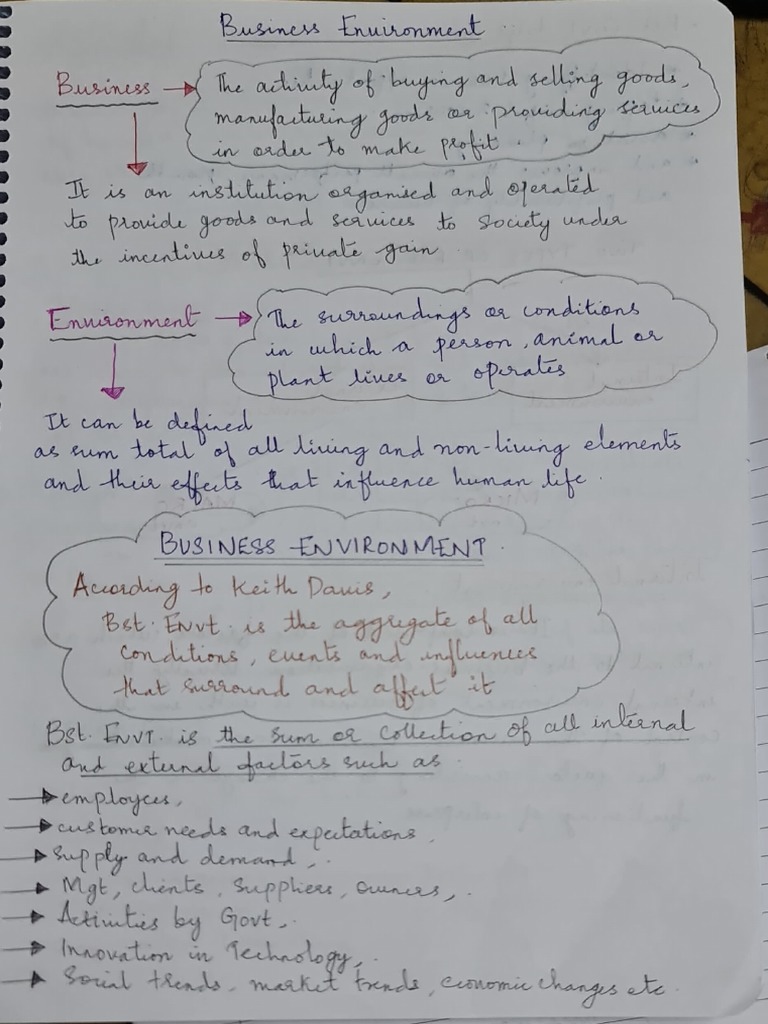 Business Environment
Business → The activity of buying and selling goods,
manufacturing goods or providing services
in order to make profit.
It is an institution organised and operated
to provide goods and services to society under
the incentives of private gain
Environment → The surroundings or conditions
in which a person, animal or
plant lives or operates
It can be defined
as sum total of all living and non-living elements
and their effects that influence human life.
BUSINESS ENVIRONMENT.
According to Keith Davis,
Bst. Envt. is the aggregate of all
conditions, events and influences
that surround and affect it
Bst. Envt. is the sum or collection of all internal
and external factors such as
→ employees,
→ customer needs and expectations,
→ Supply and demand,
→ Mgt, clients, suppliers, owners,
→ Activities by Govt.
→ Innovation in Technology,
→ Social trends, market trends, economic changes etc.